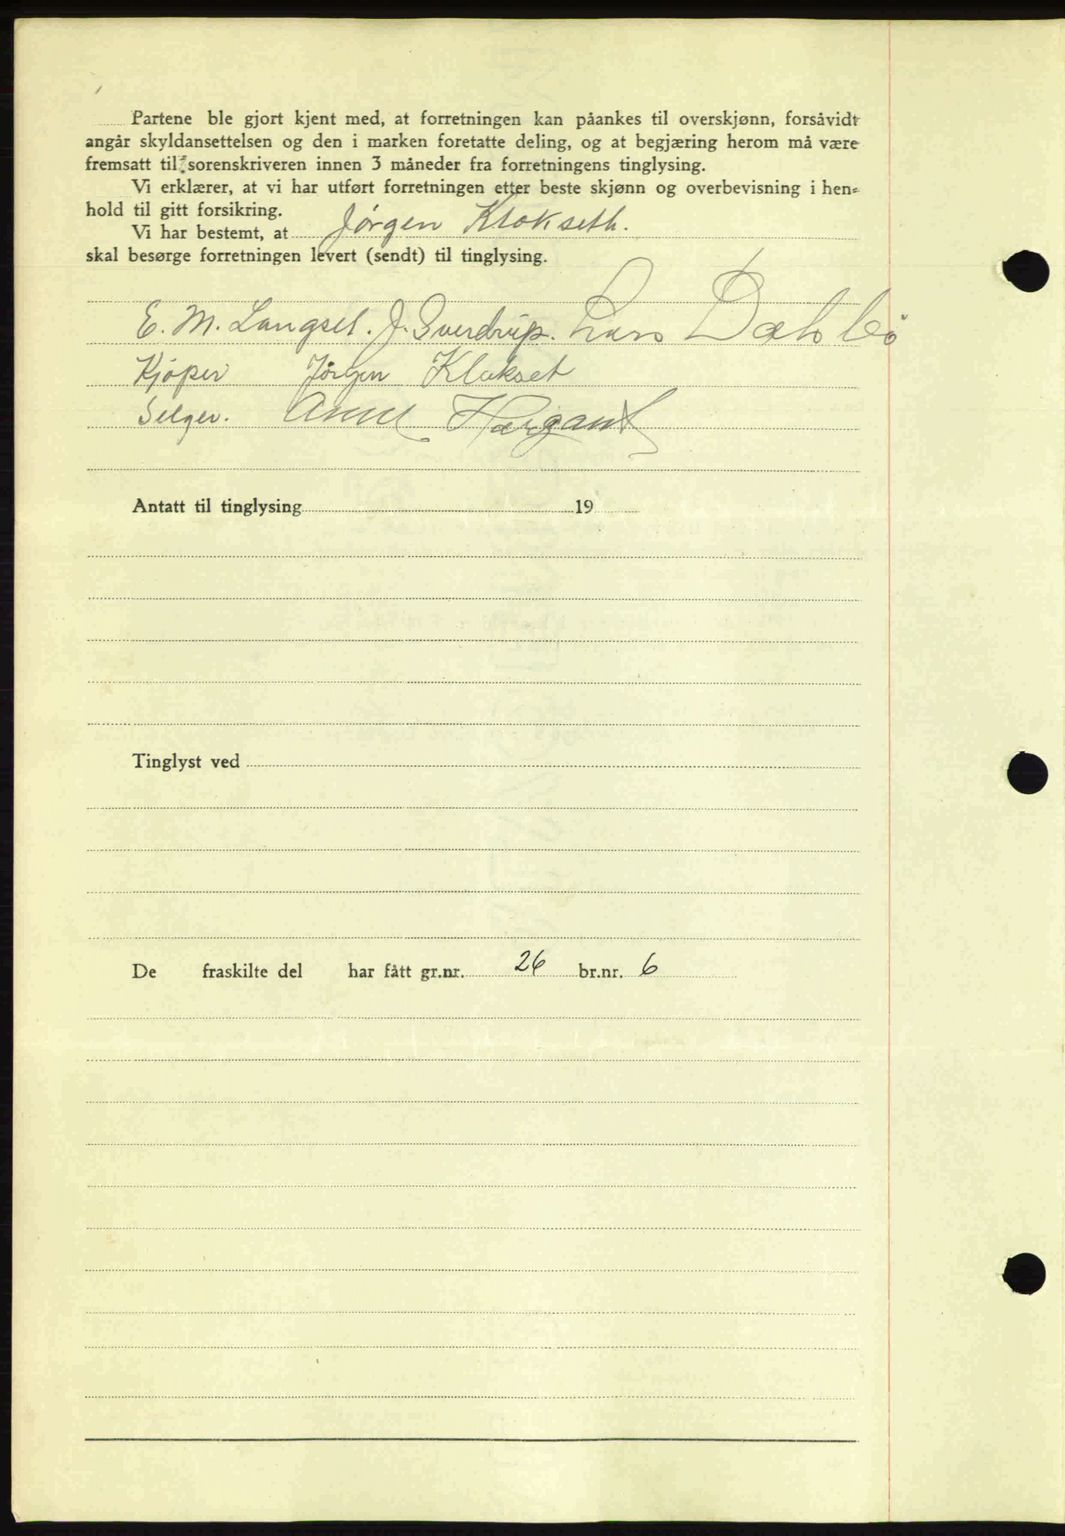 Partene ble gjort kjent med, at forretningen kan påankes til overskjønn, forsåvidt
angår skyldansettelsen og den i marken foretatte deling, og at begjæring herom må være
fremsatt til sorenskriveren innen 3 måneder fra forretningens tinglysing.
Vi erklærer, at vi har utført forretningen etter beste skjønn og overbevisning i hen-
hold til gitt forsikring.
Vi har bestemt, at Jørgen Klokseth.
skal besørge forretningen levert (sendt) til tinglysing.
E. M. Langset. J. Sverdrup. Lars Dahlbø
Kjøper Jørgen Klokset
Selger. Anne
Antatt til tinglysing 19
Tinglyst ved
De fraskilte del har fått gr.nr. 26 br.nr. 6